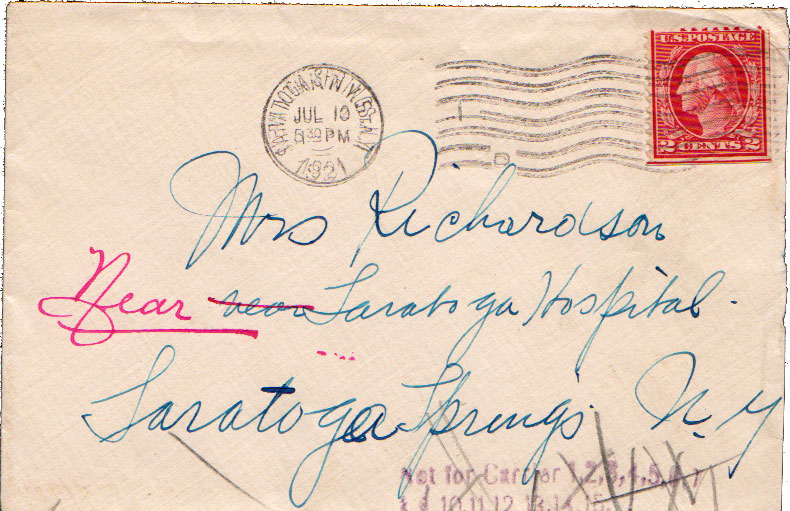 U.S. POSTAGE
JUL 10
8 30 PM
1921
2 CENTS 2
Mrs Richardson
Near near Saratoga Hospital.
Saratoga Springs. N.Y
Not for Carrier 1,2,3,4,5,
10,11,12,13,14,15.